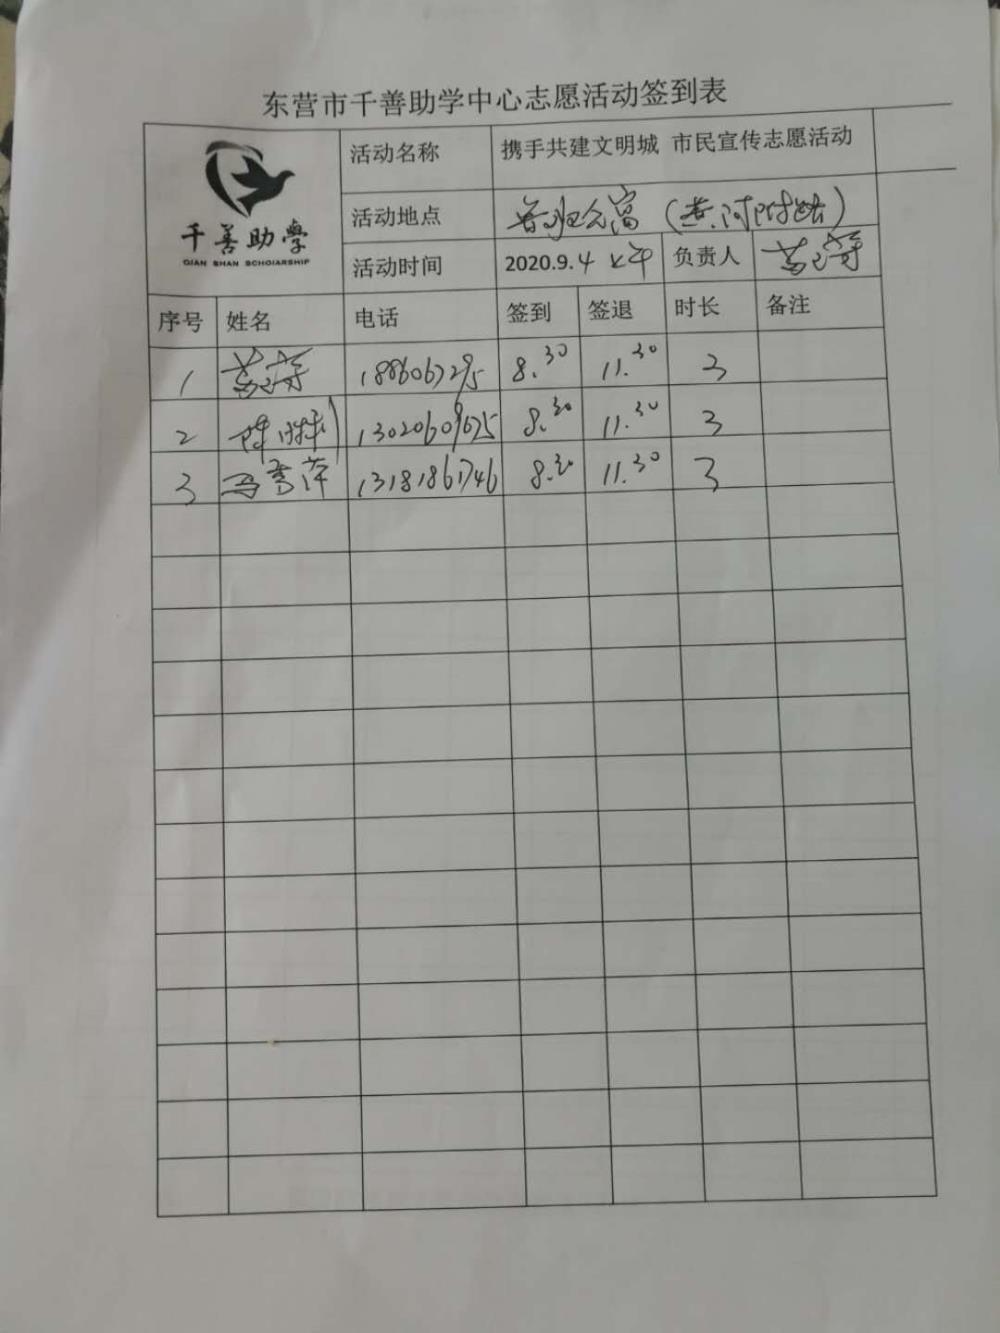 东营市千善助学中心志愿活动签到表
千善助學
QIAN SHAN SCHOLARSHIP
活动名称 携手共建文明城 市民宣传志愿活动
活动地点 鲁班公寓（黄河附路）
活动时间 2020.9.4 上午 负责人
序号 姓名 电话 签到 签退 时长 备注
1 8.30 11.30 3
2 13020609625 8.30 11.30 3
3 冯雪萍 13181861746 8.30 11.30 3